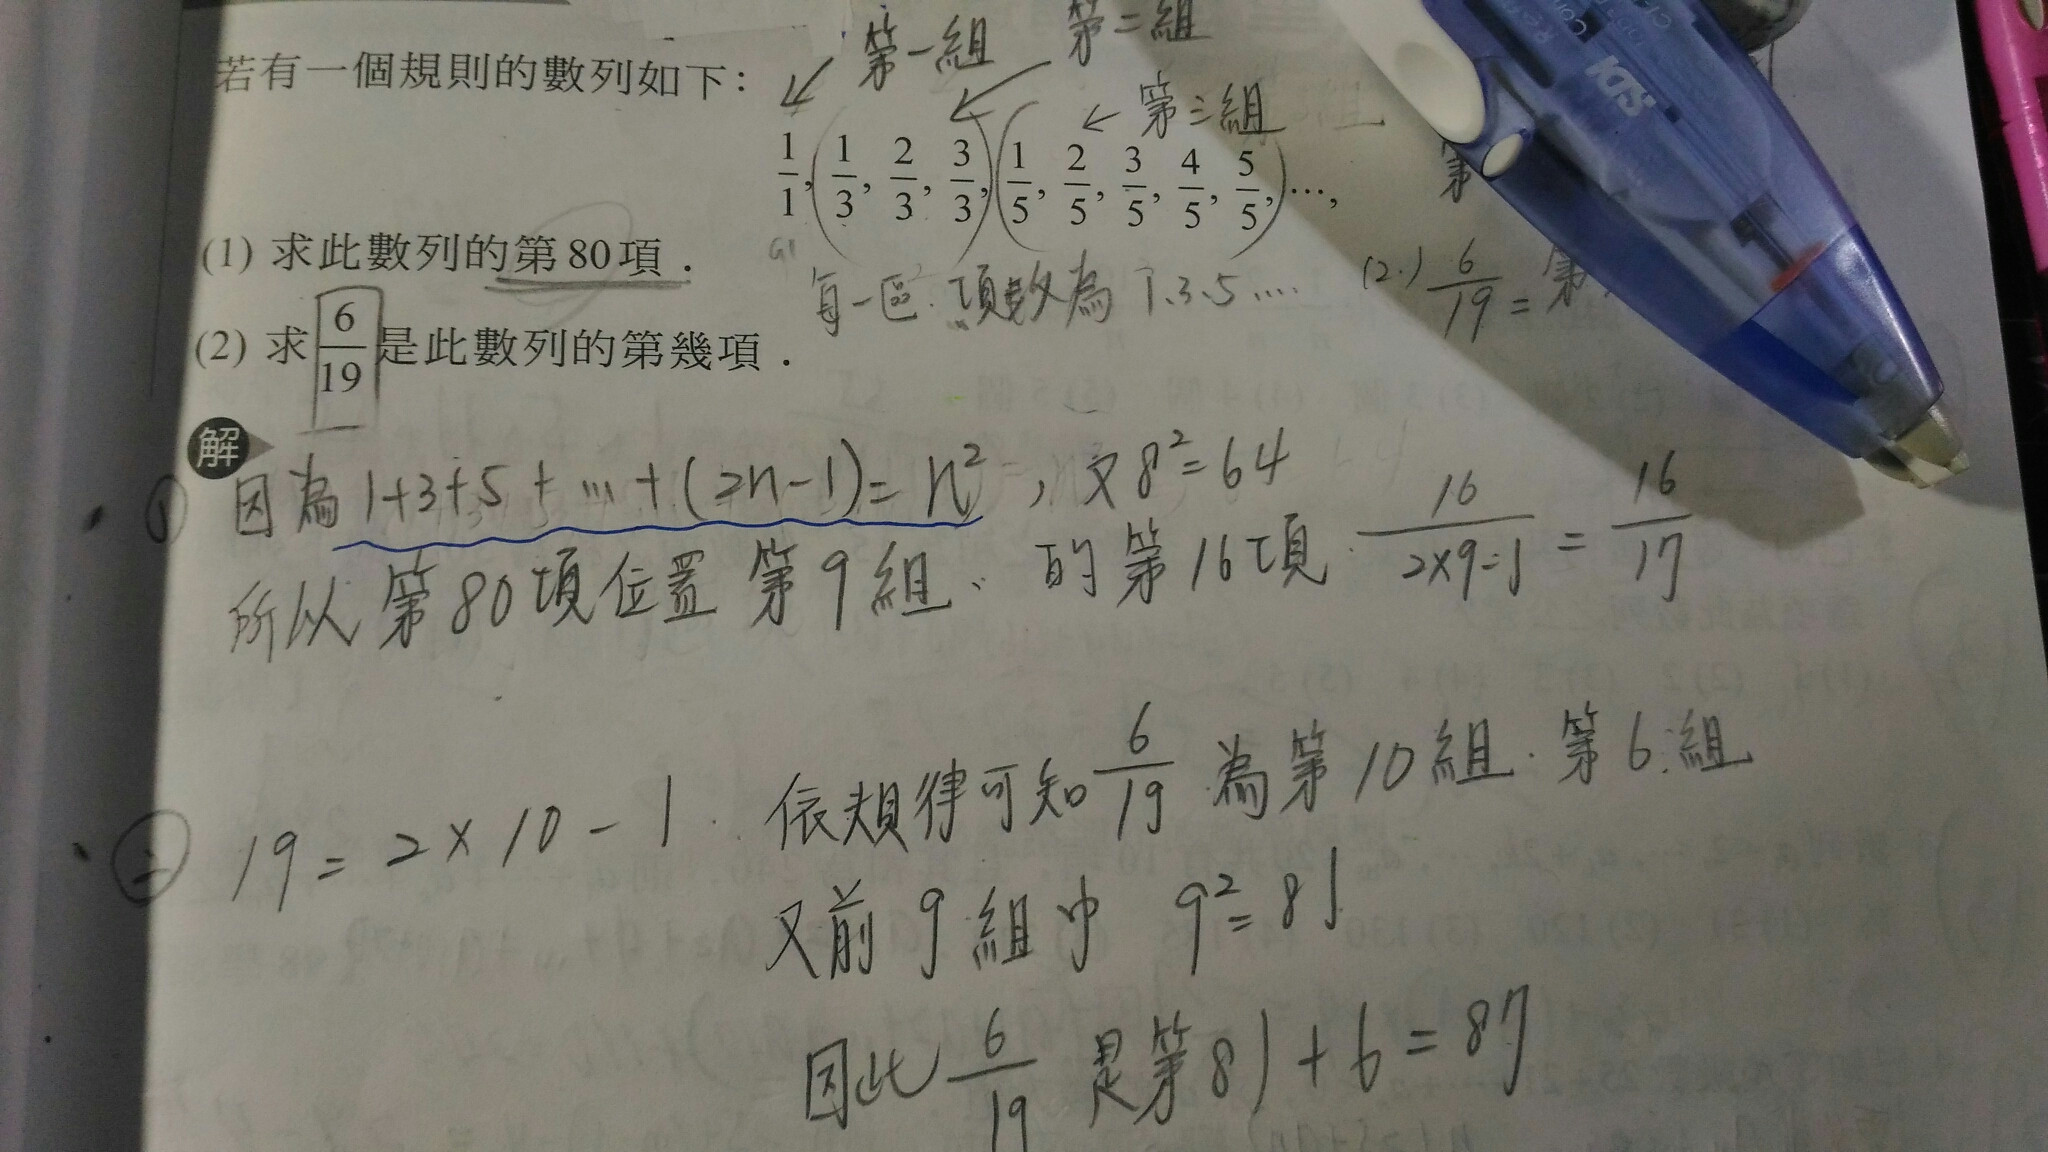 第一組 第二組
若有一個規則的數列如下:
第三組
1/1, (1/3, 2/3, 3/3,) (1/5, 2/5, 3/5, 4/5, 5/5,) …,
第
SDI
(1) 求此數列的第80項.
每一區 項數為 1.3.5....
(2.) 6/19 = 第
(2) 求 6/19 是此數列的第幾項.
解
因為 1+3+5+…+(2n-1)=n², 又 8²=64
所以 第80項位置 第9組、的第16項. 16/(2×9-1) = 16/17
19=2×10-1. 依規律可知 6/19 為第10組. 第6組
又前9組中 9²=81
因此 6/19 是第81+6=87